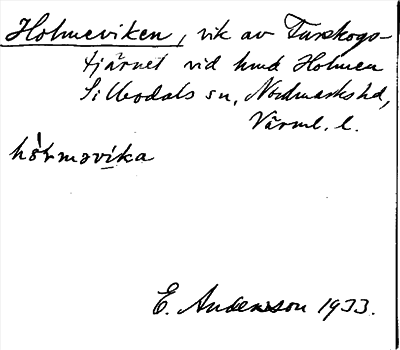 Holmeviken, vik av Turskogs-
tjärnet vid hmd Holmen
Silbodals sn, Nordmarks hd,
Värml. l.
hòlməvika
E. Andersson 1933.